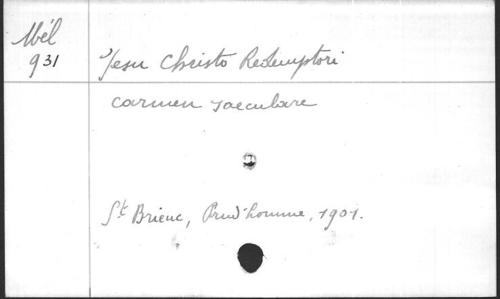 Mél
931
Jesu Christo Redemptori
Carmen saeculare
St Brieuc, Prud'homme, 1901.